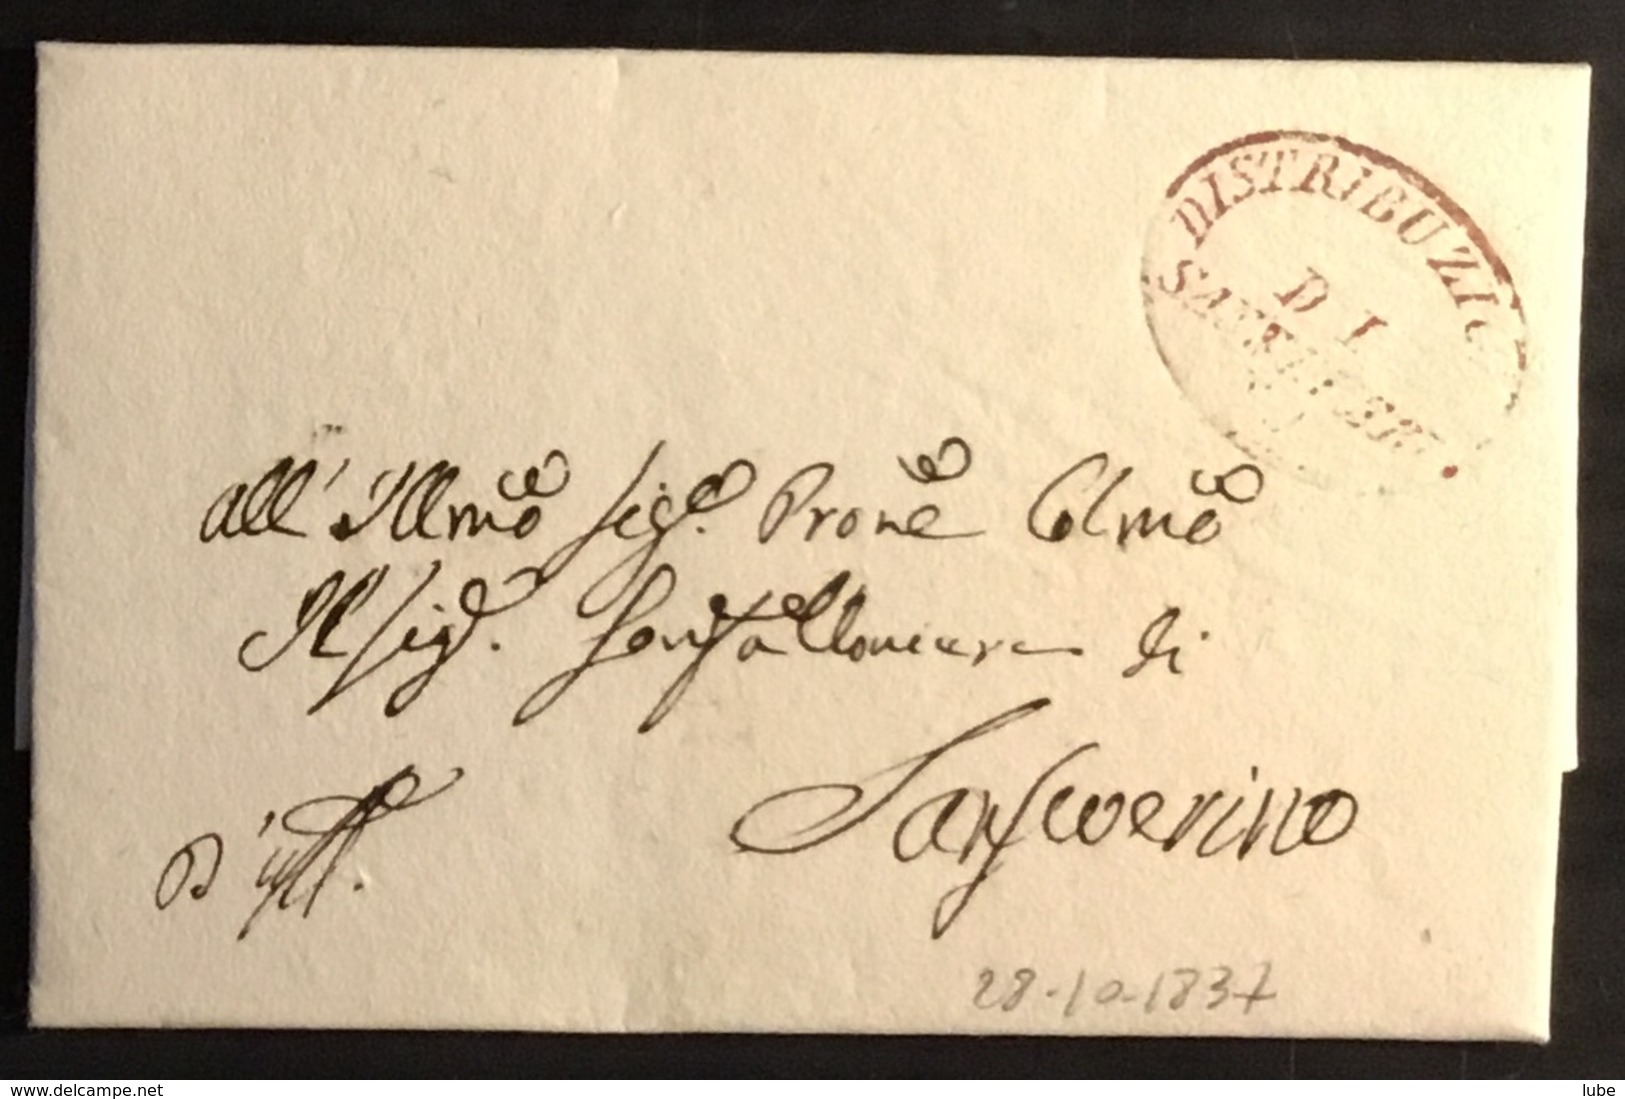 DISTRIBUZIO
DI
all' Illmo Sigr. Prone Colmo
Il Sigr. Gonfalloniere di
Sanseverino
D' uff.
28-10-1837
www.delcampe.net
lube